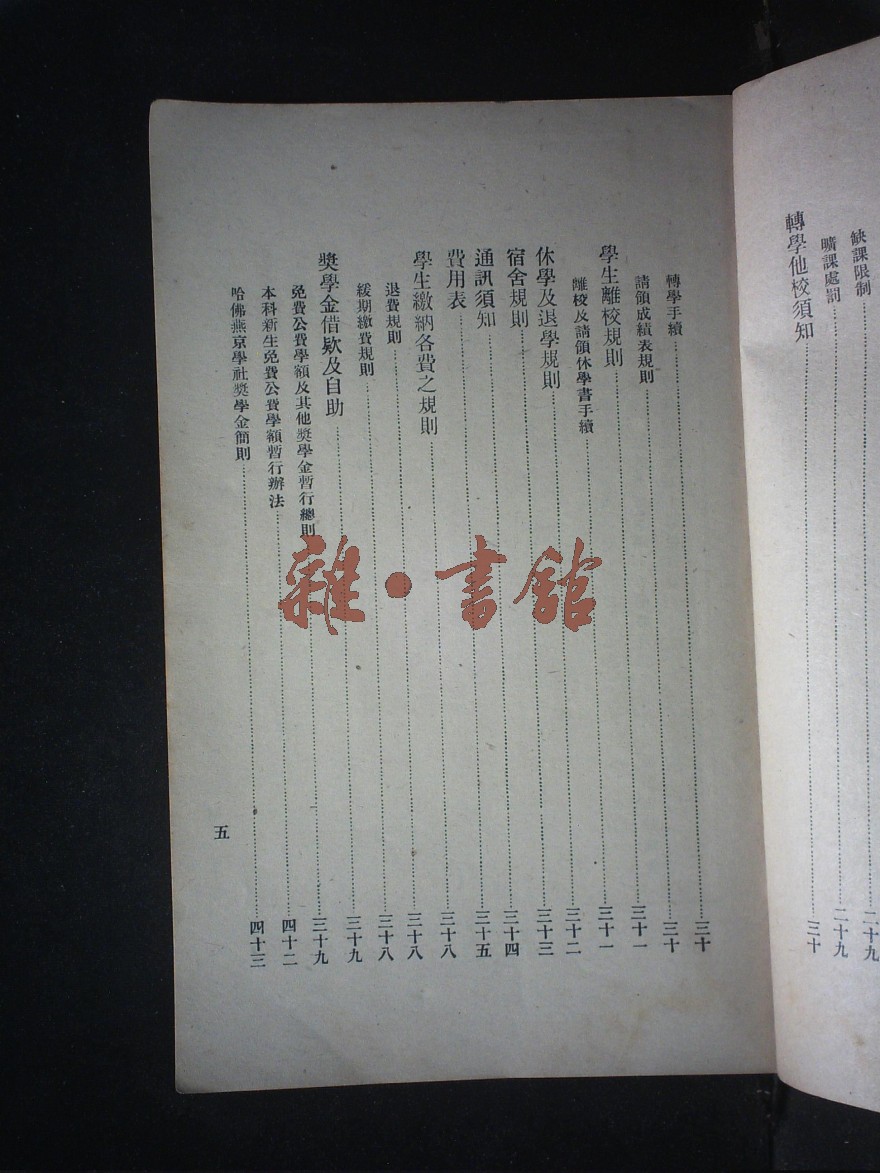 缺課限制……二十九
曠課處罰……二十九
轉學他校須知……三十
轉學手續……三十
請領成績表規則……三十
學生離校規則……三十一
離校及請領休學書手續……三十一
休學及退學規則……三十二
宿舍規則……三十三
通訊須知……三十四
費用表……三十五
學生繳納各費之規則……三十八
退費規則……三十八
緩期繳費規則……三十八
獎學金借欵及自助……三十九
免費公費學額及其他獎學金暫行總則……三十九
本科新生免費公費學額暫行辦法……四十二
哈佛燕京學社獎學金簡則……四十三
五
雜·書館